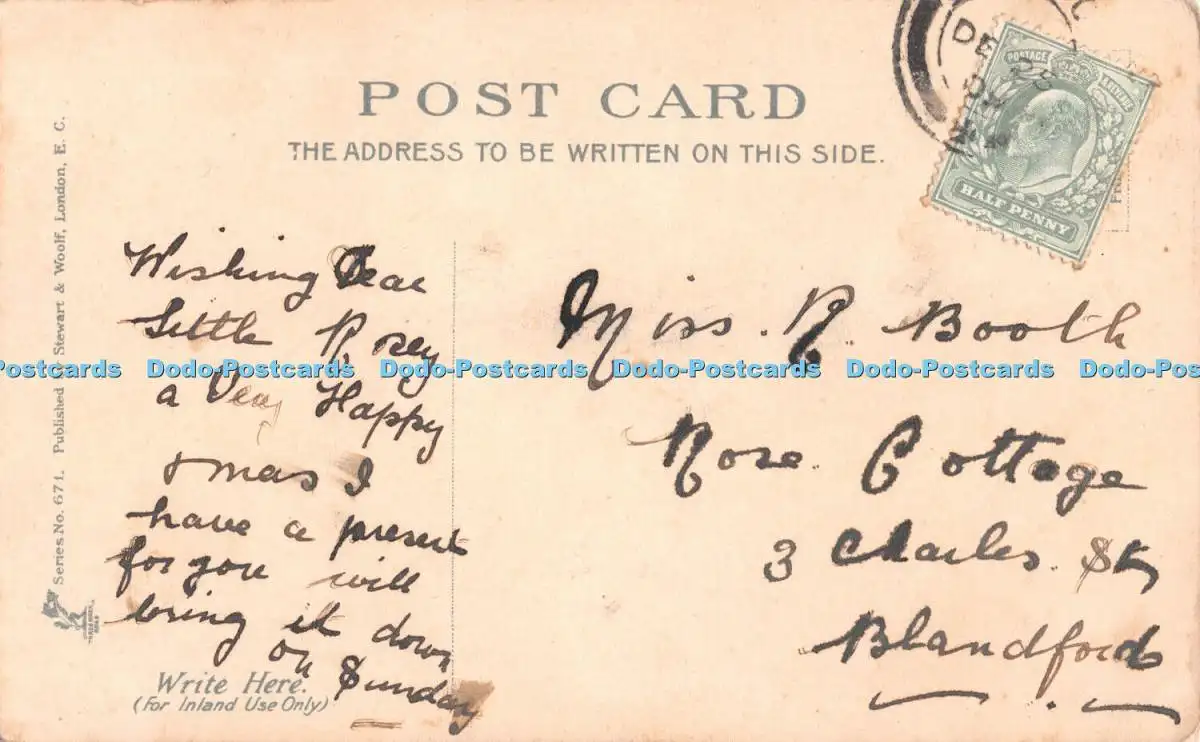 POST CARD
THE ADDRESS TO BE WRITTEN ON THIS SIDE.
POSTAGE
HALF PENNY
Series No. 671. Published by Stewart & Woolf, London, E. C.
Wishing Dear
Little Rosey
a Very Happy
Xmas I
have a present
for you will
bring it down
on Sunday
Write Here.
(For Inland Use Only)
Miss. R Booth
Rose Cottage
3 Charles St
Blandford
Dodo-Postcards Dodo-Postcards Dodo-Postcards Dodo-Postcards